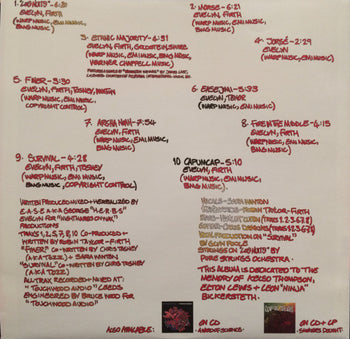 1. 200% NUTS - 4:31
EVELYN, FIRTH
(WARP MUSIC, EMI MUSIC,
BMG MUSIC)
2. MORSE - 6:21
EVELYN, FIRTH
(WARP MUSIC, EMI MUSIC,
BMG MUSIC)
3. ETHNIC MAJORITY - 4:31
EVELYN, FIRTH, GOLDSTEIN, SHIRE
(WARP MUSIC, EMI MUSIC, BMG MUSIC,
WARNER CHAPPELL MUSIC)
4. JORGÉ - 2:29
EVELYN
(WARP MUSIC,
EMI MUSIC)
5. FINER - 5:30
EVELYN, FIRTH, TOSNEY, HINTON
(WARP MUSIC, EMI MUSIC,
COPYRIGHT CONTROL)
6. EASEJIMI - 5:33
EVELYN, TENOR
(WARP MUSIC, EMI MUSIC)
7. ARGHA NOAH - 7:54
EVELYN, FIRTH
(WARP MUSIC, EMI MUSIC,
BMG MUSIC)
8. FIRE IN THE MIDDLE - 4:15
EVELYN, FIRTH
(WARP MUSIC, EMI MUSIC,
BMG MUSIC)
9. SURVIVAL - 4:28
EVELYN, FIRTH, TOSNEY
(WARP MUSIC, EMI MUSIC,
BMG MUSIC, COPYRIGHT CONTROL)
10 CAPUMCAP - 5:10
EVELYN, FIRTH
(WARP MUSIC, EMI MUSIC,
BMG MUSIC).
WRITTEN PRODUCED MIXED + HERBALIZED BY
E.A.S.E. A.K.A GEORGE "H.E.R.B.S"
EVELYN FOR "NIGHTMARES ON WAX"
PRODUCTIONS
TRAKS 1, 2, 5, 7, 8, 10 CO-PRODUCED +
WRITTEN BY ROBIN TAYLOR-FIRTH
"FINER" CO-WRITTEN BY CHRIS TOSNEY
(A.K.A TOZZ) + SARA WINTON
"SURVIVAL" CO-WRITTEN BY CHRIS TOSNEY
(A.K.A TOZZ)
ALL TRAX RECORDED + MIXED AT:
"TOUCHWOOD AUDIO" LEEDS
ENGINEERED BY BRUCE WOOD FOR
"TOUCHWOOD AUDIO"
VOCALS - SARA WINTON
KEYBOARDS - ROBIN TAYLOR-FIRTH
VOCAL PRODUCTION ON "SURVIVAL"
BY GLYN POOLE
STRINGS ON "200% NUTS" BY
PURE STRINGS ORCHESTRA
THIS ALBUM IS DEDICATED TO THE
MEMORY OF KELSO THOMPSON,
ELTON LEWIS + LEON "NINJA"
BICKERSTETH.
ALSO AVAILABLE:
ON CD
A WORD OF SCIENCE
ON CD + LP
SMOKERS DELIGHT